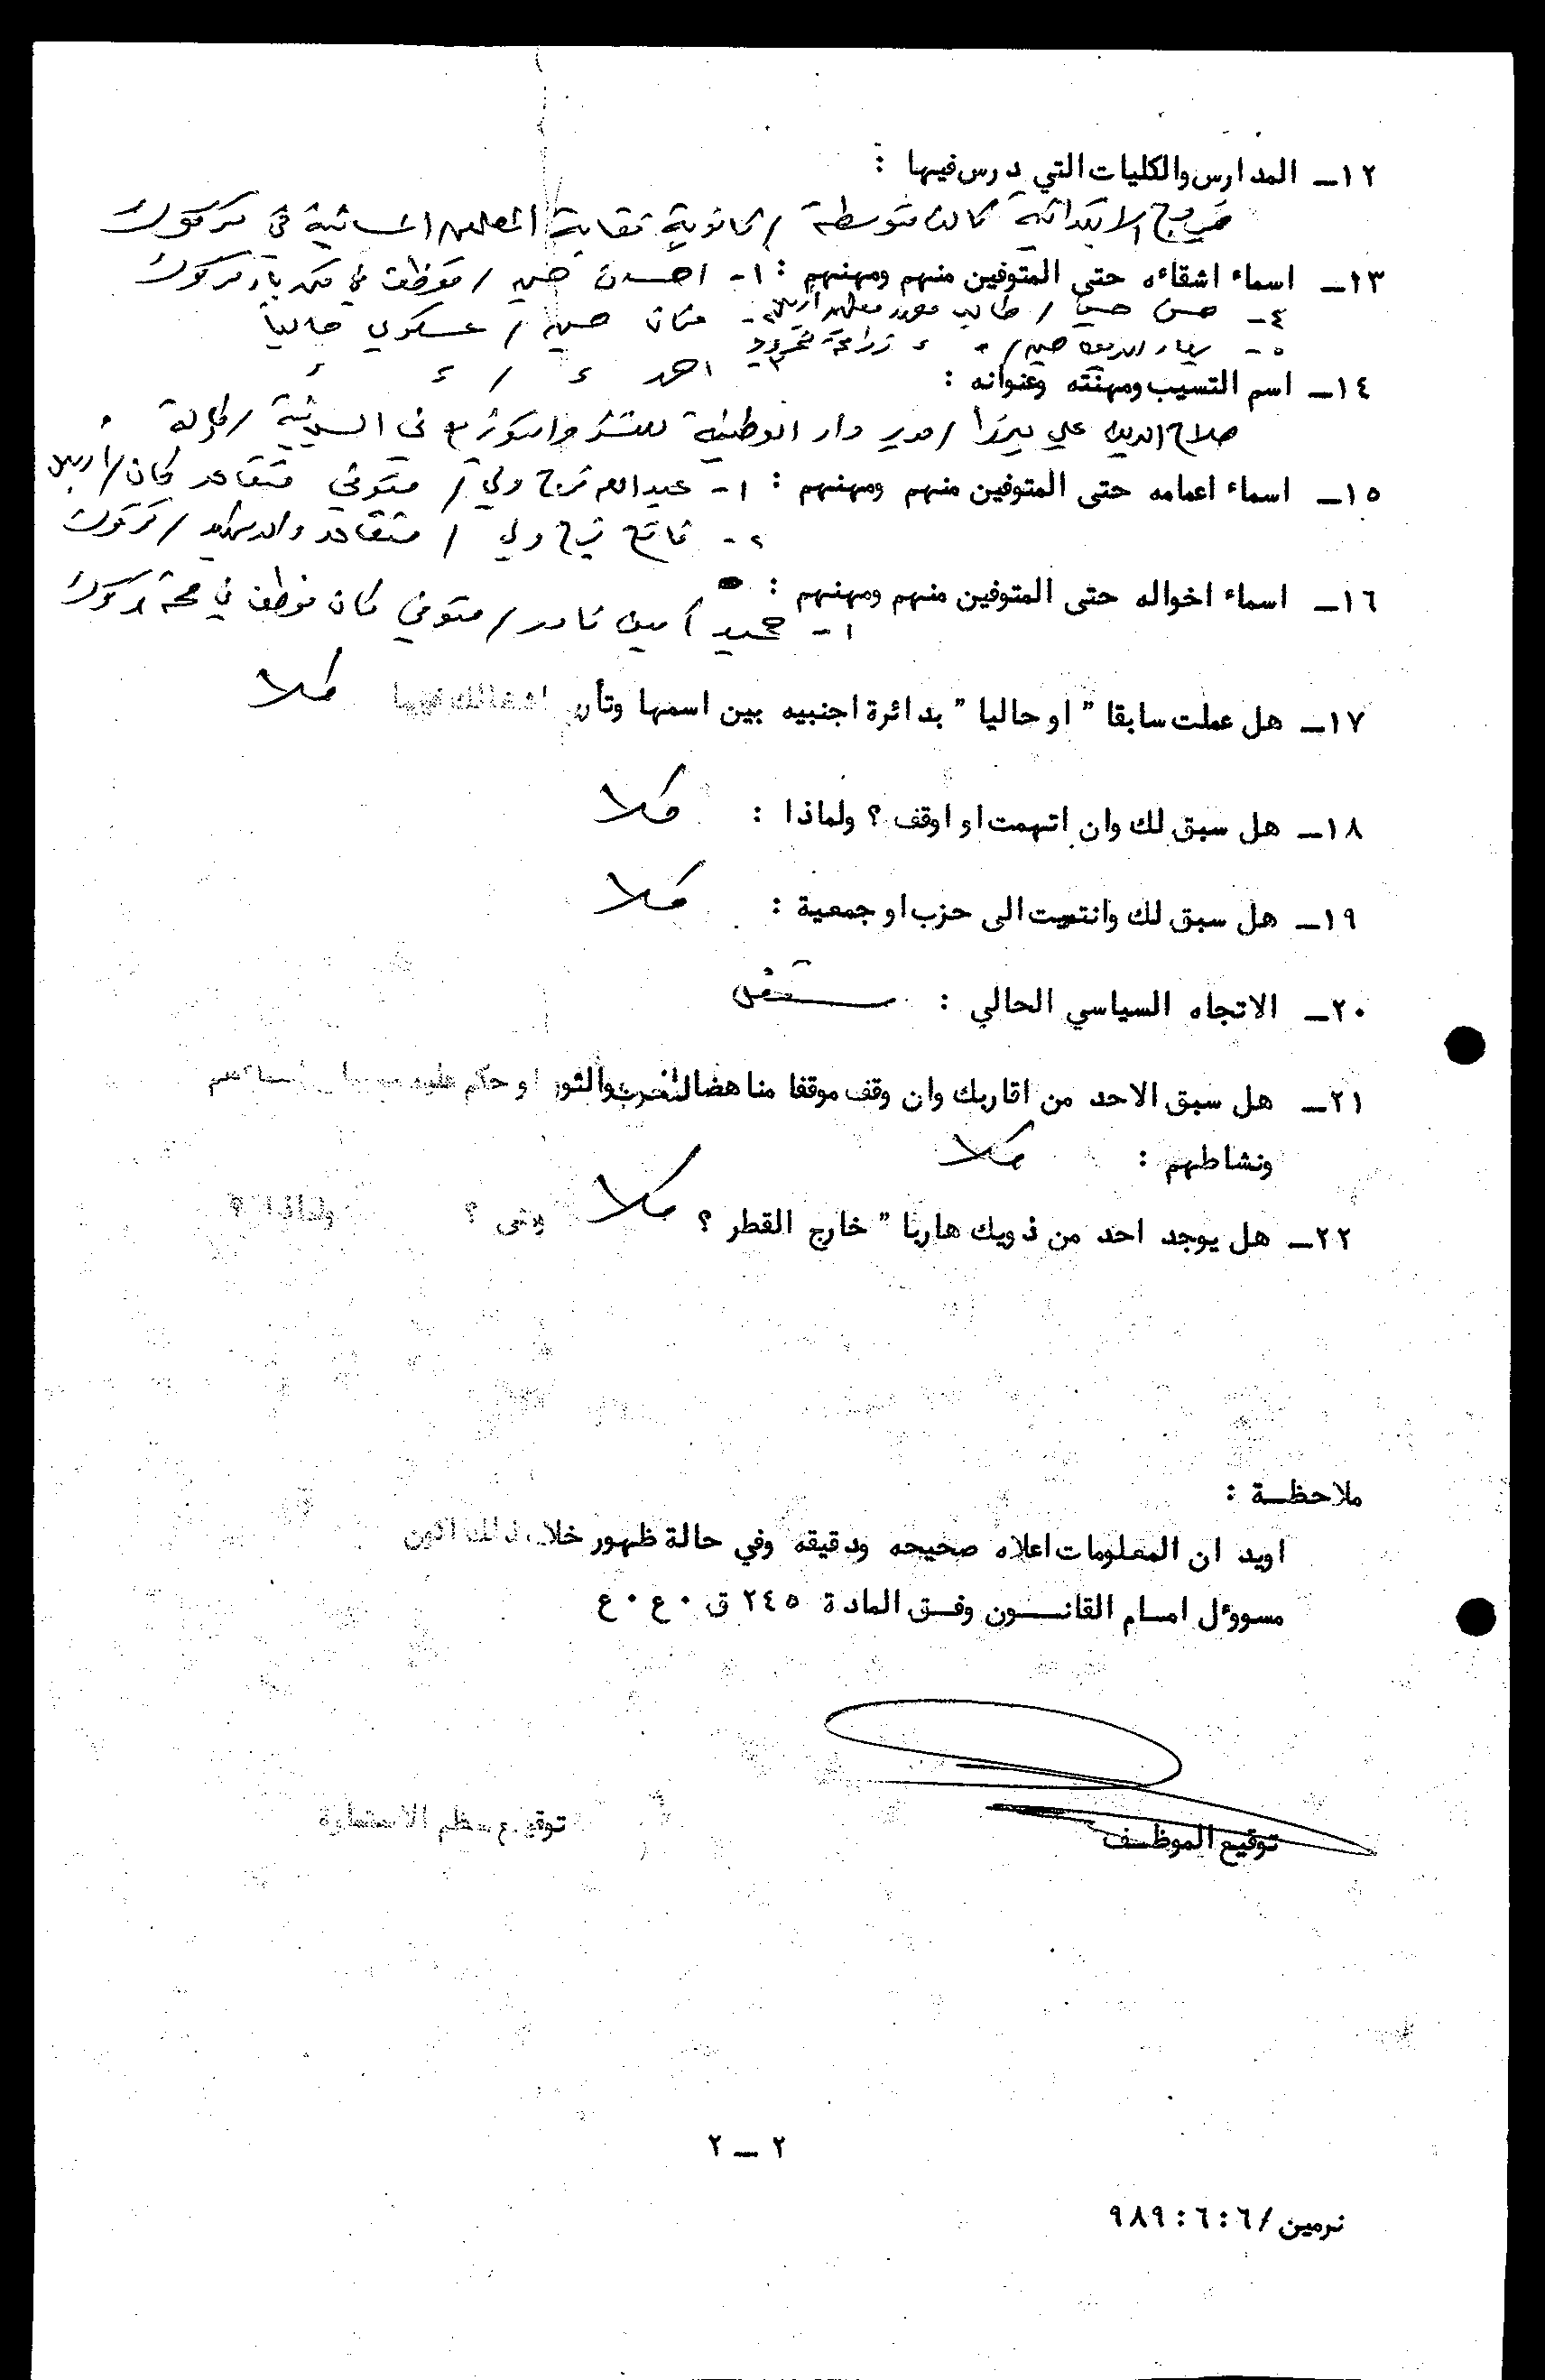 ١٢ــ المدارس والكليات التي درس فيها :
الابتدائية متوسطة / ثانوية نقابة المعلمين المسائية في كركوك
١٣ــ اسماء اشقاءه حتى المتوفين منهم ومهنهم : ١- احسان حسين / موظف في كهرباء كركوك
٤- حسن حسين / طالب معهد اربيل ٢- عثمان حسين / عسكري حاليا
٥- بهاء الدين حسين / زراعة
٣- احمد ء / ء ء
١٤ــ اسم النسيب ومهنته وعنوانه :
صلاح الدين علي ميرزا / مدير دار الوطنية للنشر والتوزيع في السليمانية / وكالة
١٥ــ اسماء اعمامه حتى المتوفين منهم ومهنهم : ١- عبدالله فرج ولي / متوفي متقاعد كان / اربيل
٢- فاتح فرج ولي / متقاعد والد شهيد / كركوك
١٦ــ اسماء اخواله حتى المتوفين منهم ومهنهم :
١- حميد امين نادر / متوفي كان موظف في صحة كركوك
١٧ــ هل عملت سابقا " او حاليا " بدائرة اجنبيه بين اسمها وتأريخ اشغالك فيها كلا
١٨ــ هل سبق لك وان اتهمت او اوقف ؟ ولماذا : كلا
١٩ــ هل سبق لك وانتميت الى حزب او جمعية : كلا
٢٠ــ الاتجاه السياسي الحالي : مستقل
٢١ــ هل سبق الاحد من اقاربك وان وقف موقفا مناهضا للحزب والثورة او حكم عليه
ونشاطهم : كلا
٢٢ــ هل يوجد احد من ذويك هاربا " خارج القطر ؟ كلا ومتى ؟ ولماذا ؟
ملاحظــة :
اويد ان المعلومات اعلاه صحيحه ودقيقه وفي حالة ظهور خلاف ذلك اكون
مسوؤل امـام القانــون وفــق المادة ٢٤٥ ق ٠ ع ٠ ع
توقيع الموظــف
توقيع منظم الاستمارة
٢ ــ ٢
نرمين / ٦ : ٦ : ٩٨٩